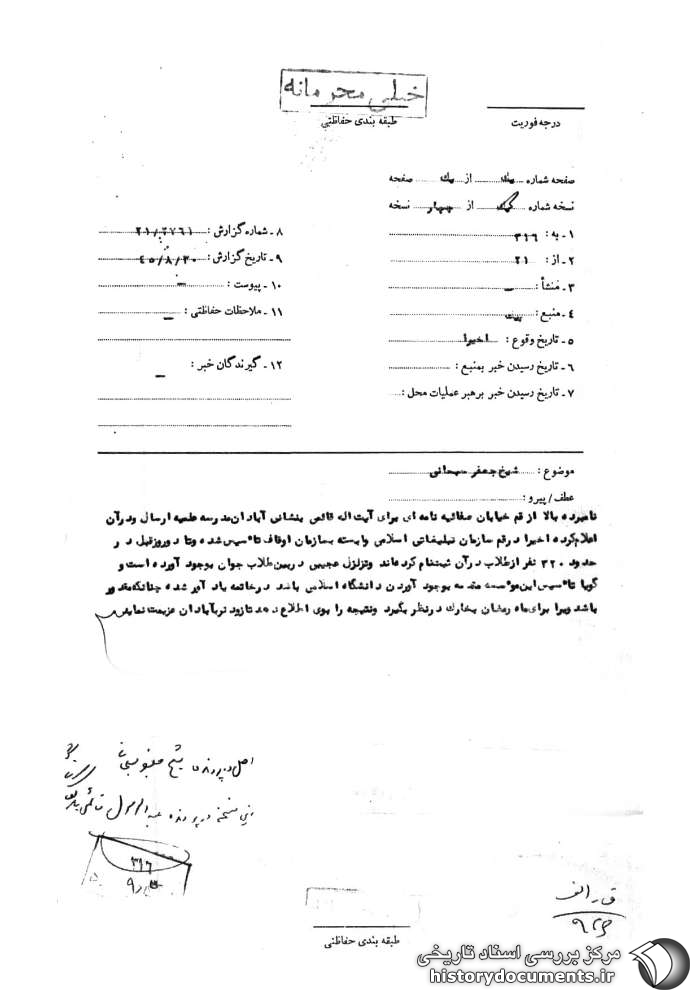 خیلی محرمانه
طبقه بندی حفاظتی
درجه فوریت
صفحه شماره یک از یک صفحه
نسخه شماره یک از چهار نسخه
۱ ـ به : ۳۱۶
۲ ـ از : ۲۱
۳ ـ منشأ : ـ
۴ ـ منبع :
۵ ـ تاریخ وقوع : اخیرا
۶ ـ تاریخ رسیدن خبر بمنبع :
۷ ـ تاریخ رسیدن خبر برهبر عملیات محل :
۸ ـ شماره گزارش : ۲۱/۲۷۶۱
۹ ـ تاریخ گزارش : ۴۵/۸/۳۰
۱۰ ـ پیوست : ـ
۱۱ ـ ملاحظات حفاظتی : ـ
۱۲ ـ گیرندگان خبر : ـ
موضوع : شیخ جعفر سبحانی
عطف / پیرو :
نامبرده بالا از قم خیابان صفائیه نامه ای برای آیت اله قائمی بنشانی آبادان مدرسه علمیه ارسال ودرآن
اعلام کرده اخیرا درقم سازمان تبلیغاتی اسلامی وابسته بسازمان اوقاف تأسیس شده وتا دوروزقبل در
حدود ۳۲۰ نفر ازطلاب درآن ثبتنام کرده اند وتزلزل عجیبی دربین طلاب جوان بوجود آورده است و
گویا تأسیس این مؤسسه مقدمه بوجود آوردن دانشگاه اسلامی باشد درخاتمه یاد آور شده چنانکه مقدور
باشد ویرا برای ماه رمضان بخارک درنظر بگیرد ونتیجه را بوی اطلاع دهد تا زود تر بآبادان عزیمت نمایش
اصل در پرونده شیخ جعفر سبحانی
این نسخه در پرونده عبدالرسول قائمی
۳۱۶
طبقه بندی حفاظتی
مرکز بررسی اسناد تاریخی
historydocuments.ir